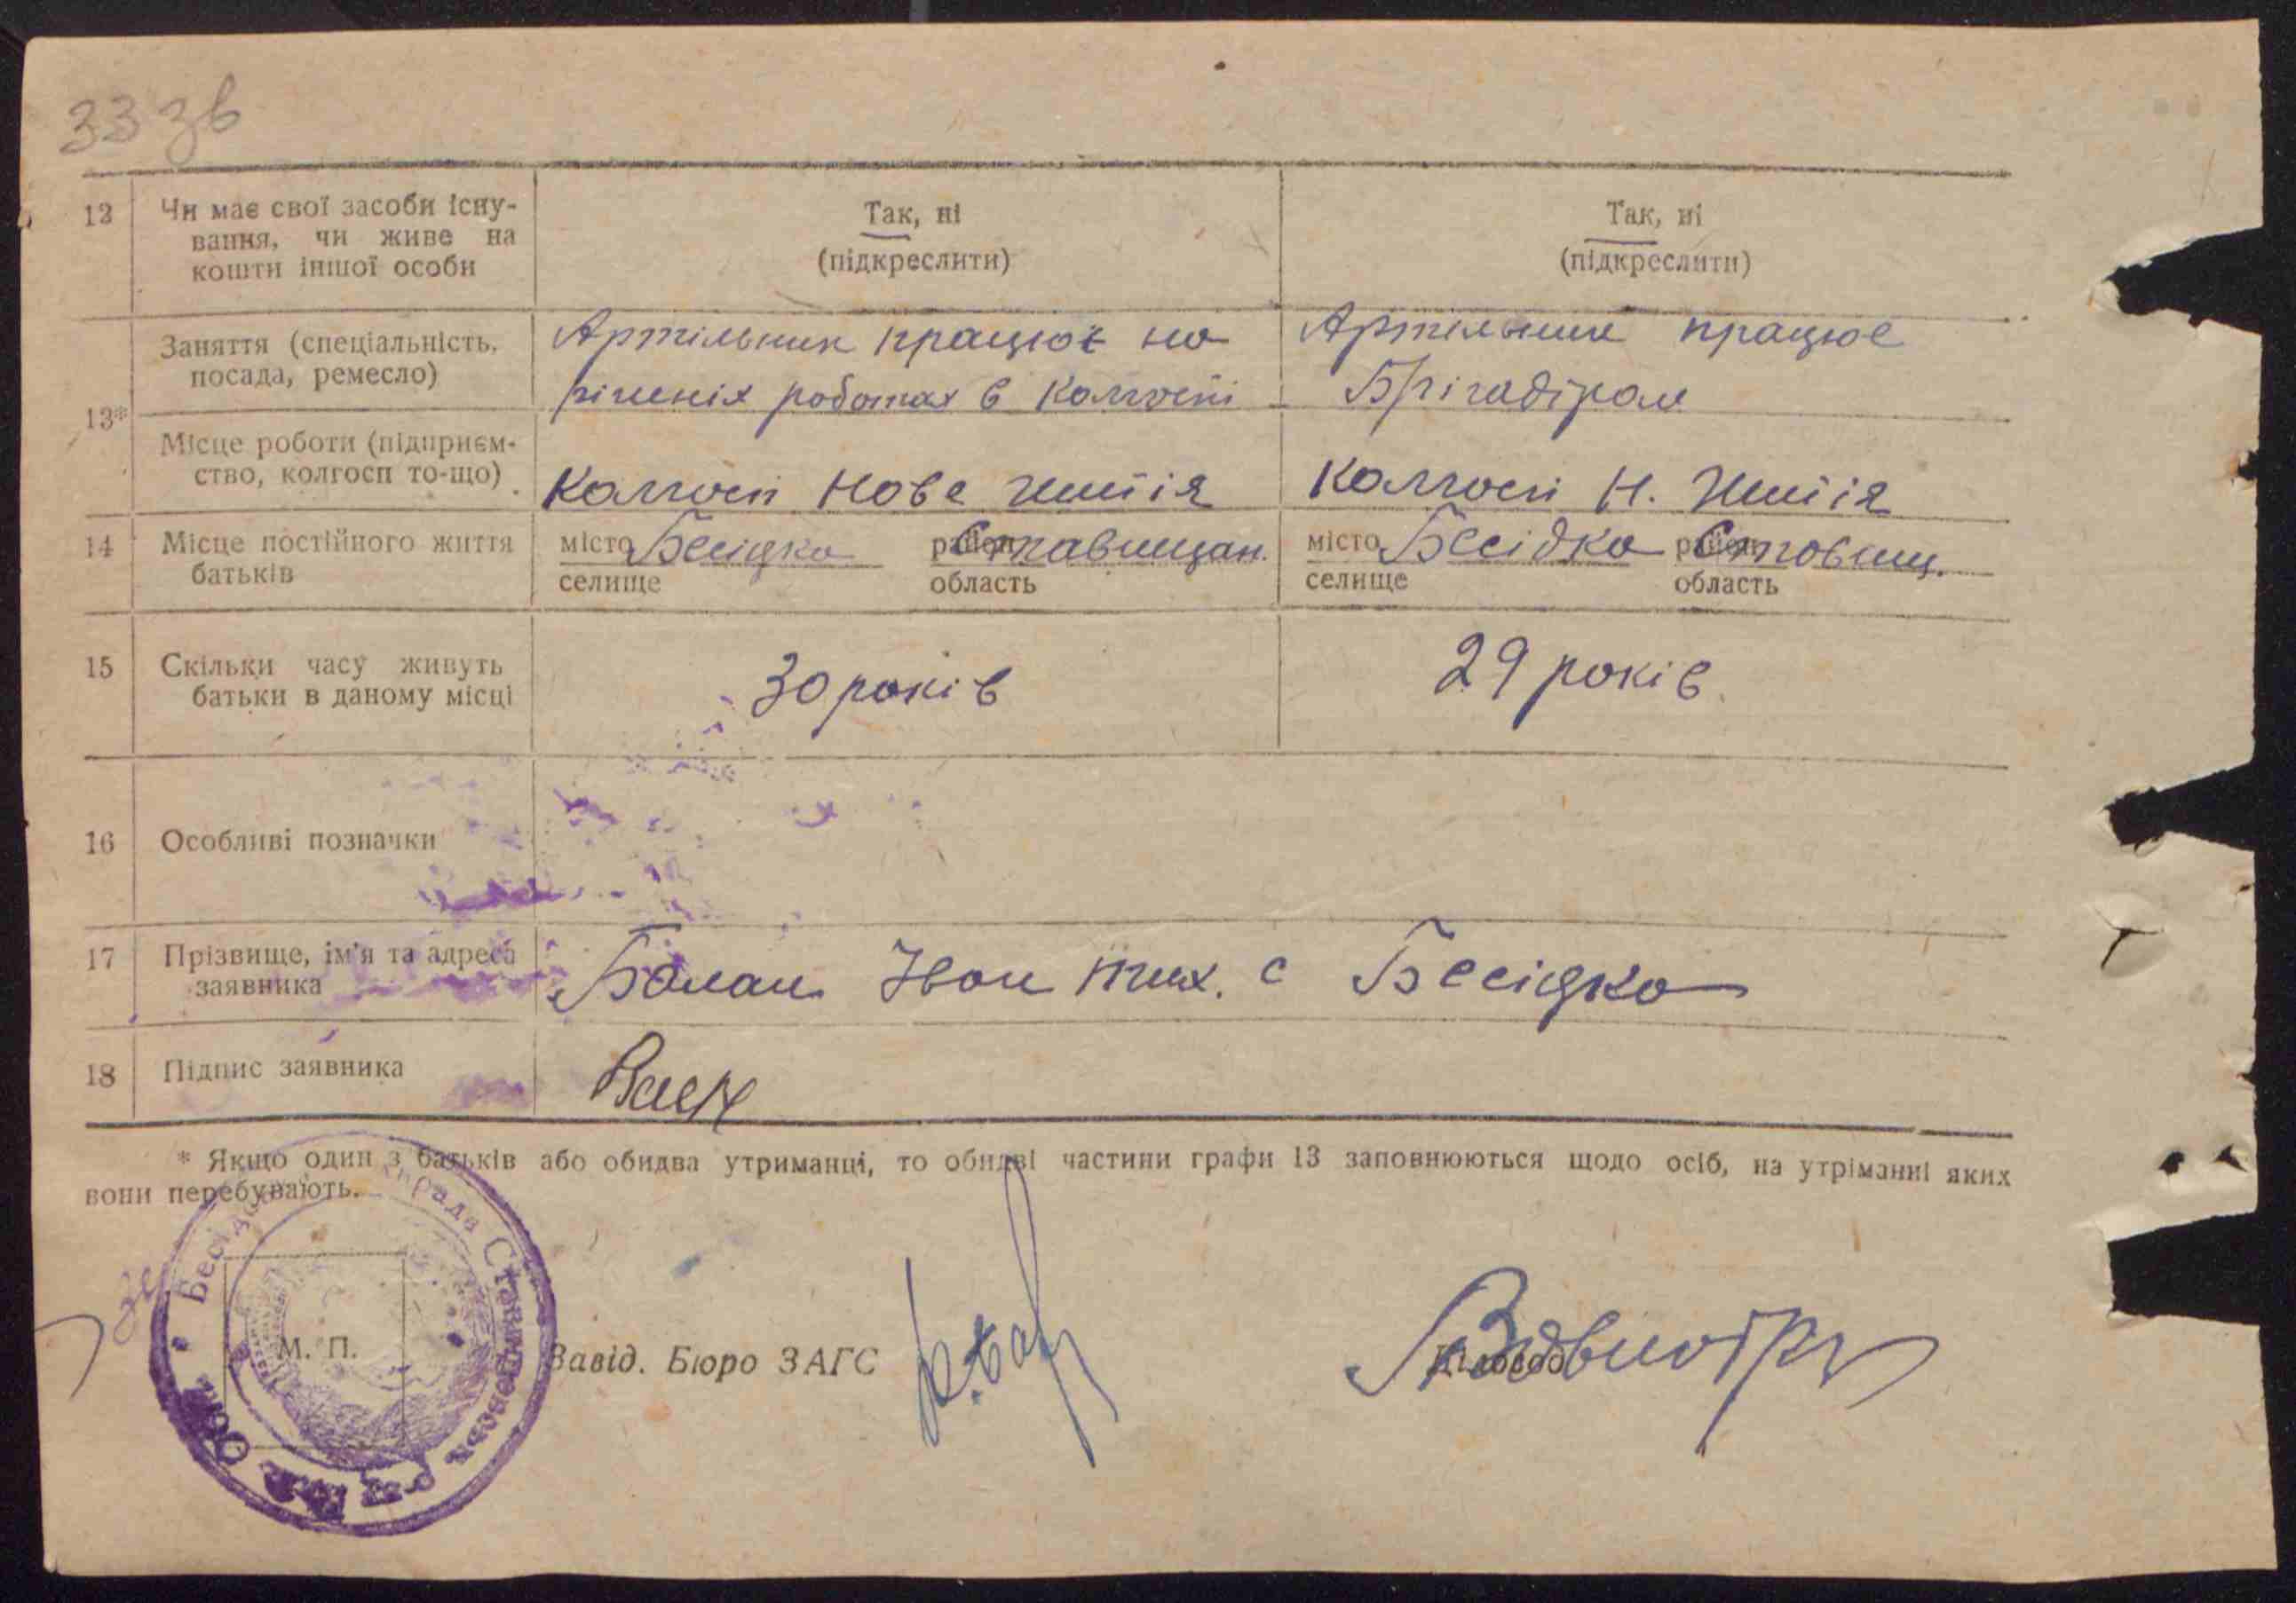 33 зв
12 Чи має свої засоби існу- Так, ні Так, ні
вання, чи живе на
кошти іншої особи (підкреслити) (підкреслити)
13* Заняття (спеціальність, Артільник працює на Артільник працює
посада, ремесло) різніх роботах в колгоспі Брігадіром
Місце роботи (підприєм-
ство, колгосп то-що) Колгосп Нове життія Колгосп Н. Життія
14 Місце постійного життя місто Бесідка район Ставищан. місто Бесідка район Ставищ.
батьків селище область селище область
15 Скільки часу живуть 30 років 29 років
батьки в даному місці
16 Особливі позначки
17 Прізвище, ім'я та адреса Балан Іван Тих. с Бесідка
заявника
18 Підпис заявника
* Якщо один з батьків або обидва утриманці, то обидві частини графи 13 заповнюються щодо осіб, на утріманні яких
вони перебувають.
М. П.
Завід. Бюро ЗАГС Діловод